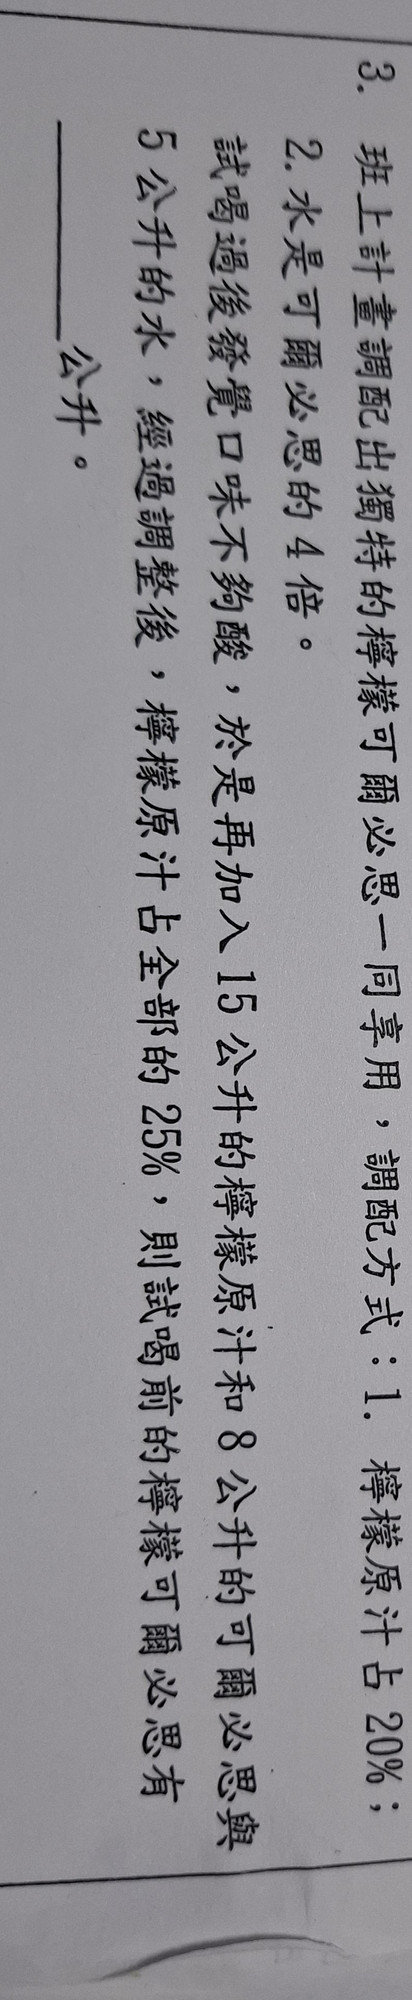 3. 班上計畫調配出獨特的檸檬可爾必思一同享用，調配方式：1. 檸檬原汁占 20%；
2. 水是可爾必思的 4 倍。
試喝過後發覺口味不夠酸，於是再加入 15 公升的檸檬原汁和 8 公升的可爾必思與
5 公升的水，經過調整後，檸檬原汁占全部的 25%，則試喝前的檸檬可爾必思有
公升。